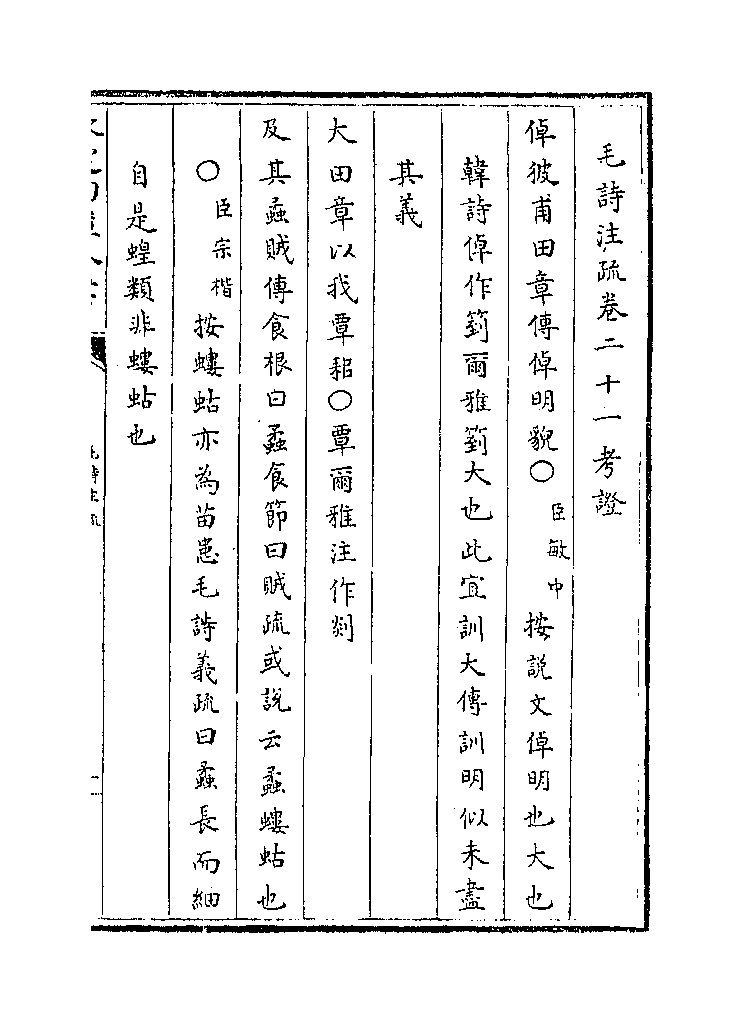 毛詩注疏卷二十一考證
倬彼甫田章傳倬明貌〇臣敏中按説文倬明也大也
韓詩倬作箌爾雅箌大也此宜訓大傳訓明似未盡
其義
大田章以我覃耜〇覃爾雅注作剡
及其蟊賊傳食根曰蟊食節曰賊疏或説云蟊螻蛄也
〇臣宗楷按螻蛄亦為苗患毛詩義疏曰蟊長而細
自是蝗類非螻蛄也
毛詩注疏